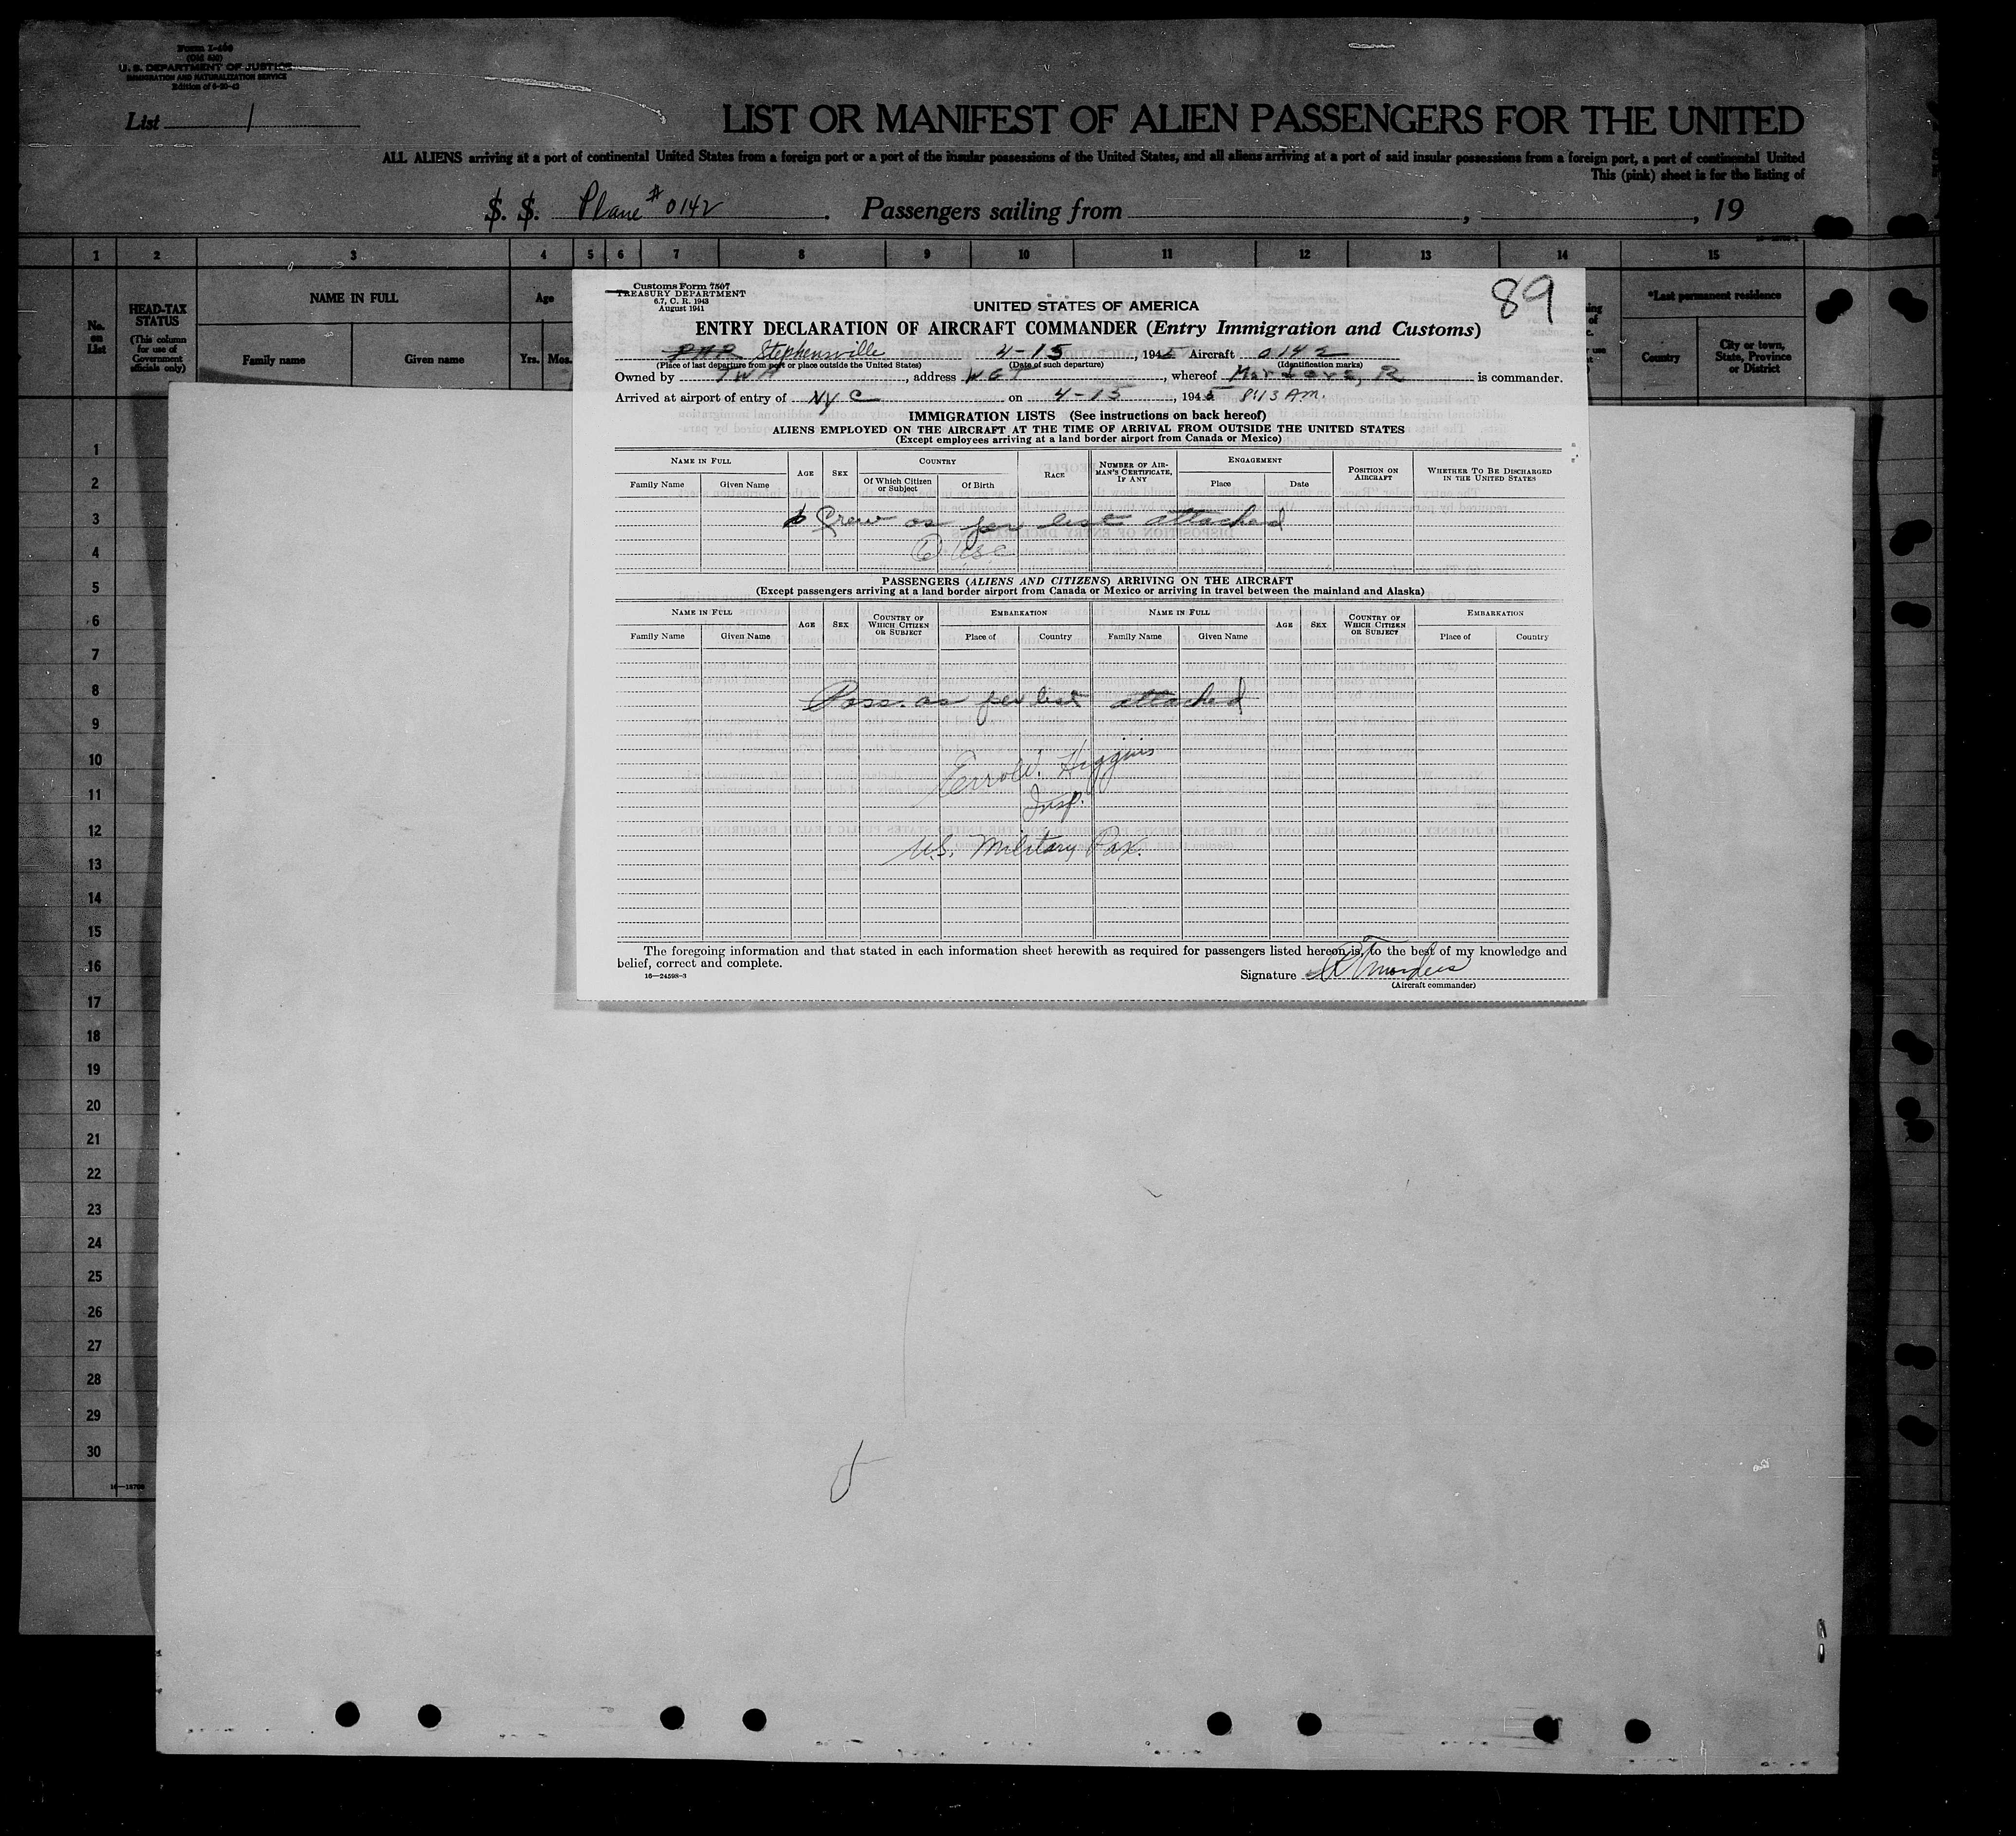 Form I-466
(Old 630)
U. S. DEPARTMENT OF JUSTICE
IMMIGRATION AND NATURALIZATION SERVICE
Edition of 6-20-42
List 1
LIST OR MANIFEST OF ALIEN PASSENGERS FOR THE UNITED
ALL ALIENS arriving at a port of continental United States from a foreign port or a port of the insular possessions of the United States, and all aliens arriving at a port of said insular possessions from a foreign port, a port of continental United
This (pink) sheet is for the listing of
S. S. Plane # 0142. Passengers sailing from , , 19
1 2 3 4 5 6 7 8 9 10 11 12 13 14 15
No. on List
HEAD-TAX STATUS
(This column for use of Government officials only)
NAME IN FULL
Family name Given name
Age
Yrs. Mos.
*Last permanent residence
Country
City or town, State, Province or District
89
Customs Form 7507
TREASURY DEPARTMENT
6.7, C. R. 1943
August 1941
UNITED STATES OF AMERICA
ENTRY DECLARATION OF AIRCRAFT COMMANDER (Entry Immigration and Customs)
Stephensville 4-15, 1945 Aircraft 0142
(Place of last departure from port or place outside the United States) (Date of such departure) (Identification marks)
Owned by TWA, address , whereof R is commander.
Arrived at airport of entry of NYC on 4-15, 1945 8:13 AM.
IMMIGRATION LISTS (See instructions on back hereof)
ALIENS EMPLOYED ON THE AIRCRAFT AT THE TIME OF ARRIVAL FROM OUTSIDE THE UNITED STATES
(Except employees arriving at a land border airport from Canada or Mexico)
NAME IN FULL AGE SEX COUNTRY RACE NUMBER OF AIRMAN'S CERTIFICATE, IF ANY ENGAGEMENT POSITION ON AIRCRAFT WHETHER TO BE DISCHARGED IN THE UNITED STATES
Family Name Given Name Of Which Citizen or Subject Of Birth Place Date
Crew as per list attached
6 USC
PASSENGERS (ALIENS AND CITIZENS) ARRIVING ON THE AIRCRAFT
(Except passengers arriving at a land border airport from Canada or Mexico or arriving in travel between the mainland and Alaska)
NAME IN FULL AGE SEX COUNTRY OF WHICH CITIZEN OR SUBJECT EMBARKATION NAME IN FULL AGE SEX COUNTRY OF WHICH CITIZEN OR SUBJECT EMBARKATION
Family Name Given Name Place of Country Family Name Given Name Place of Country
Pass. as per list attached
Errol W. Higgins
Insp.
U.S. Military Pax.
The foregoing information and that stated in each information sheet herewith as required for passengers listed hereon is, to the best of my knowledge and
belief, correct and complete.
16—24598-3
Signature
(Aircraft commander)
1
2
3
4
5
6
7
8
9
10
11
12
13
14
15
16
17
18
19
20
21
22
23
24
25
26
27
28
29
30